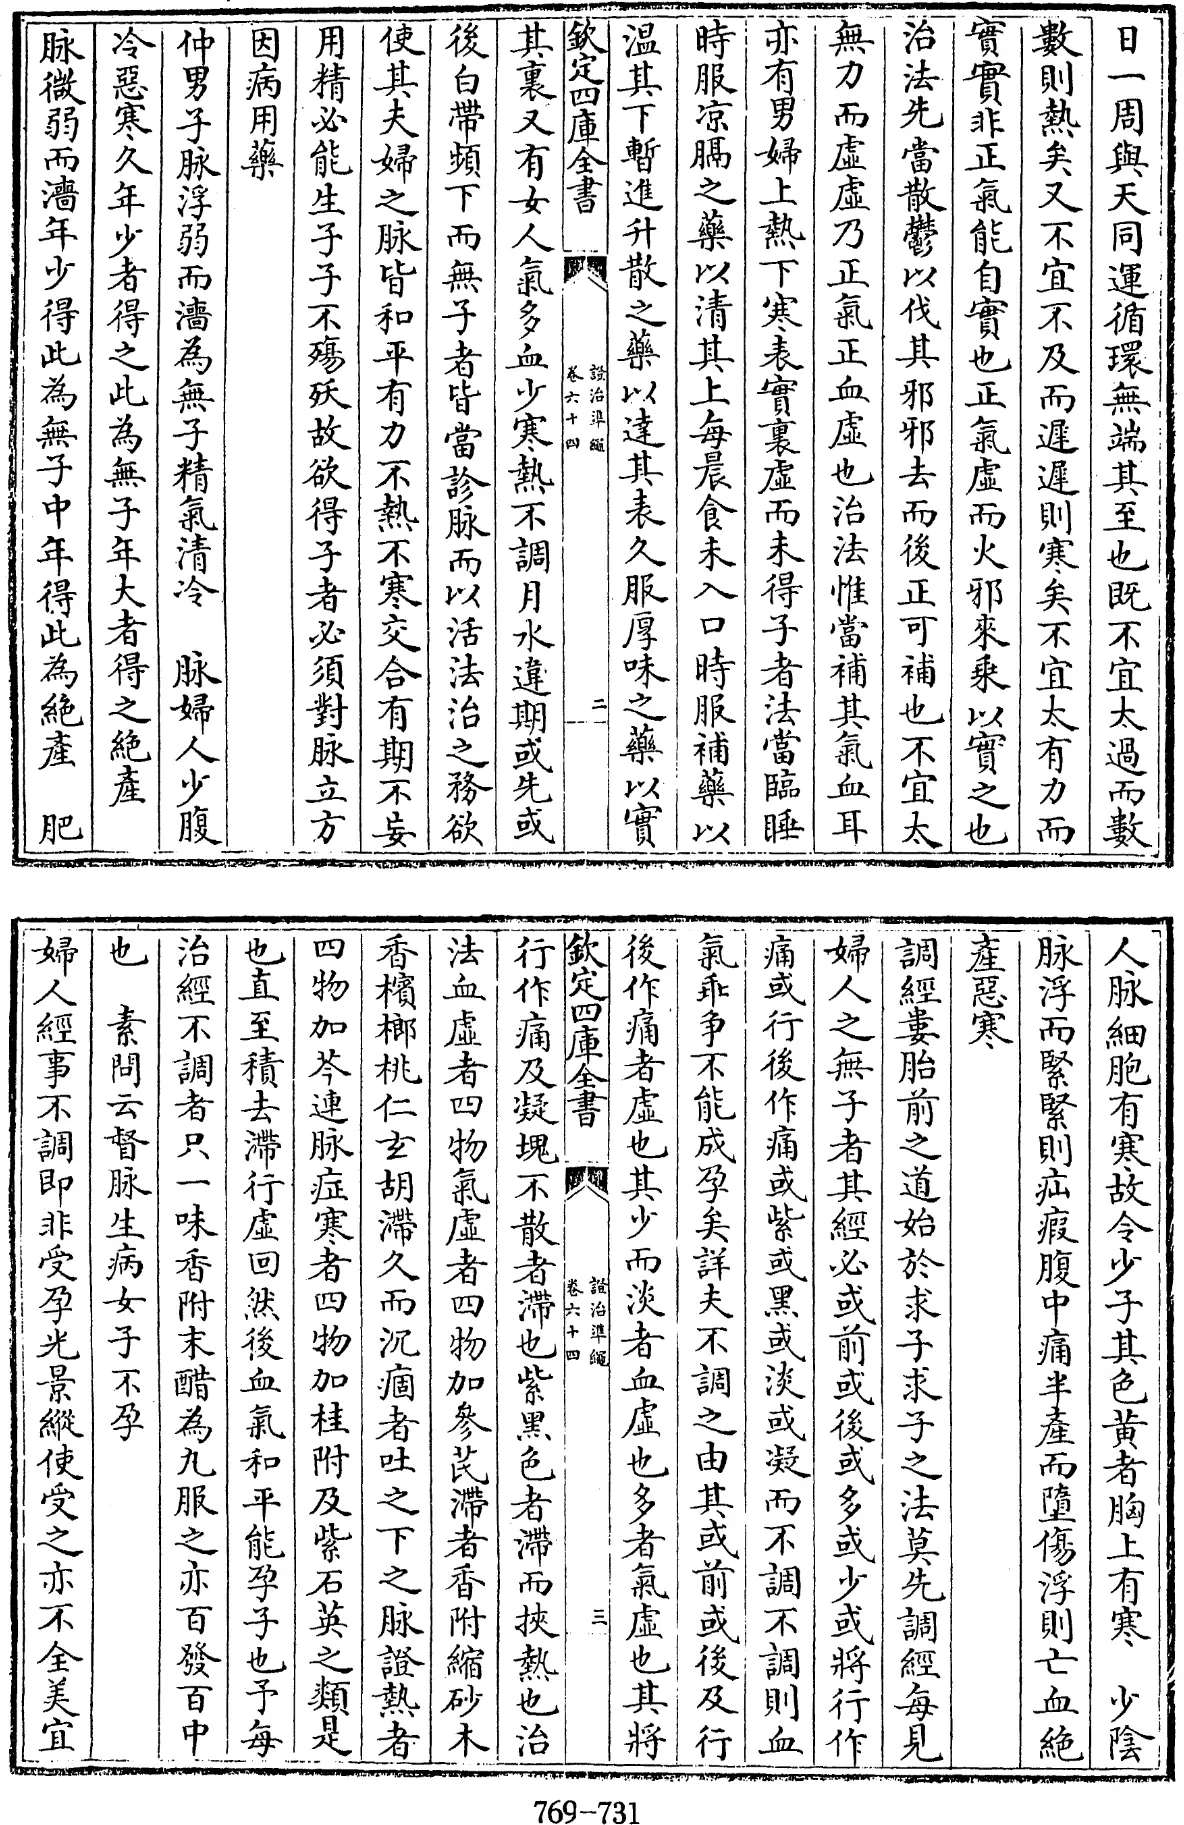 日一周與天同運循環無端其至也既不宜太過而數
數則熱矣又不宜不及而遲遲則寒矣不宜太有力而
實實非正氣能自實也正氣虛而火邪來乘以實之也
治法先當散鬱以伐其邪邪去而後正可補也不宜太
無力而虛虛乃正氣正血虛也治法惟當補其氣血耳
亦有男婦上熱下寒表實裏虛而未得子者法當臨睡
時服凉膈之藥以清其上每晨食未入口時服補藥以
温其下暫進升散之藥以達其表久服厚味之藥以實
欽定四庫全書
證治準繩
卷六十四
二
其裏又有女人氣多血少寒熱不調月水違期或先或
後白帶頻下而無子者皆當診脉而以活法治之務欲
使其夫婦之脉皆和平有力不熱不寒交合有期不妄
用精必能生子子不殤殀故欲得子者必須對脉立方
因病用藥
仲男子脉浮弱而濇為無子精氣清冷 脉婦人少腹
冷惡寒久年少者得之此為無子年大者得之絶產
脉微弱而濇年少得此為無子中年得此為絶產 肥
人脉細胞有寒故令少子其色黄者胸上有寒 少陰
脉浮而緊緊則疝瘕腹中痛半產而墮傷浮則亡血絶
產惡寒
調經婁胎前之道始於求子求子之法莫先調經每見
婦人之無子者其經必或前或後或多或少或將行作
痛或行後作痛或紫或黑或淡或凝而不調不調則血
氣乖争不能成孕矣詳夫不調之由其或前或後及行
後作痛者虛也其少而淡者血虛也多者氣虛也其將
欽定四庫全書
證治準繩
卷六十四
三
行作痛及凝塊不散者滯也紫黑色者滯而挾熱也治
法血虛者四物氣虛者四物加參芪滯者香附縮砂木
香檳榔桃仁玄胡滯久而沉痼者吐之下之脉證熱者
四物加芩連脉症寒者四物加桂附及紫石英之類是
也直至積去滯行虛回然後血氣和平能孕子也予每
治經不調者只一味香附末醋為丸服之亦百發百中
也 素問云督脉生病女子不孕
婦人經事不調即非受孕光景縱使受之亦不全美宜
769-731